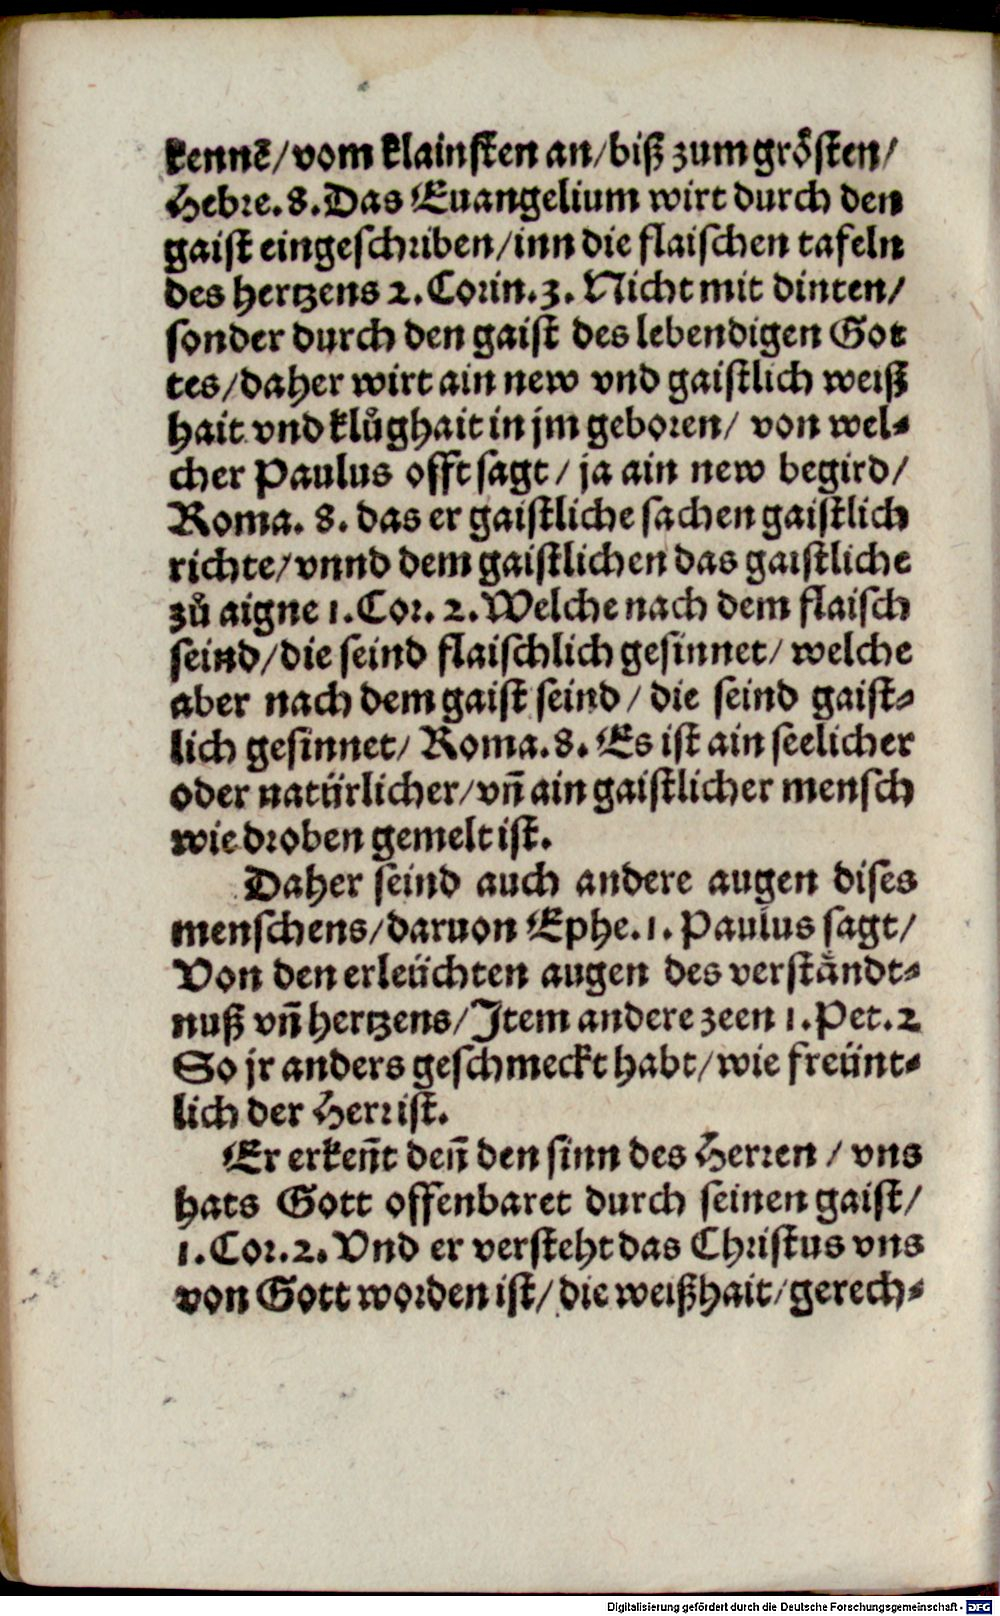 kennē/vom klainsten an/biß zum grösten/
Hebre. 8. Das Euangelium wirt durch den
gaist eingeschriben/inn die flaischen tafeln
des hertzens 2. Corin. 3. Nicht mit dinten/
sonder durch den gaist des lebendigen Got
tes/daher wirt ain new vnd gaistlich weiß
hait vnd klůghait in jm geboren/ von wel-
cher Paulus offt sagt/ ja ain new begird/
Roma. 8. das er gaistliche sachen gaistlich
richte/vnnd dem gaistlichen das gaistliche
zů aigne 1. Cor. 2. Welche nach dem flaisch
seind/die seind flaischlich gesinnet/ welche
aber nach dem gaist seind/ die seind gaist-
lich gesinnet/ Roma. 8. Es ist ain seelicher
oder natürlicher/vñ ain gaistlicher mensch
wie droben gemelt ist.
Daher seind auch andere augen dises
menschens/daruon Ephe. 1. Paulus sagt/
Von den erleüchten augen des verståndt-
nuß vñ hertzens/Item andere zeen 1. Pet. 2
So jr anders geschmeckt habt/wie freünt-
lich der Herr ist.
Er erkeñt deñ den sinn des Herren / vns
hats Gott offenbaret durch seinen gaist/
1. Cor. 2. Vnd er versteht das Christus vns
von Gott worden ist/ die weißhait/gerech-
Digitalisierung gefördert durch die Deutsche Forschungsgemeinschaft - DFG